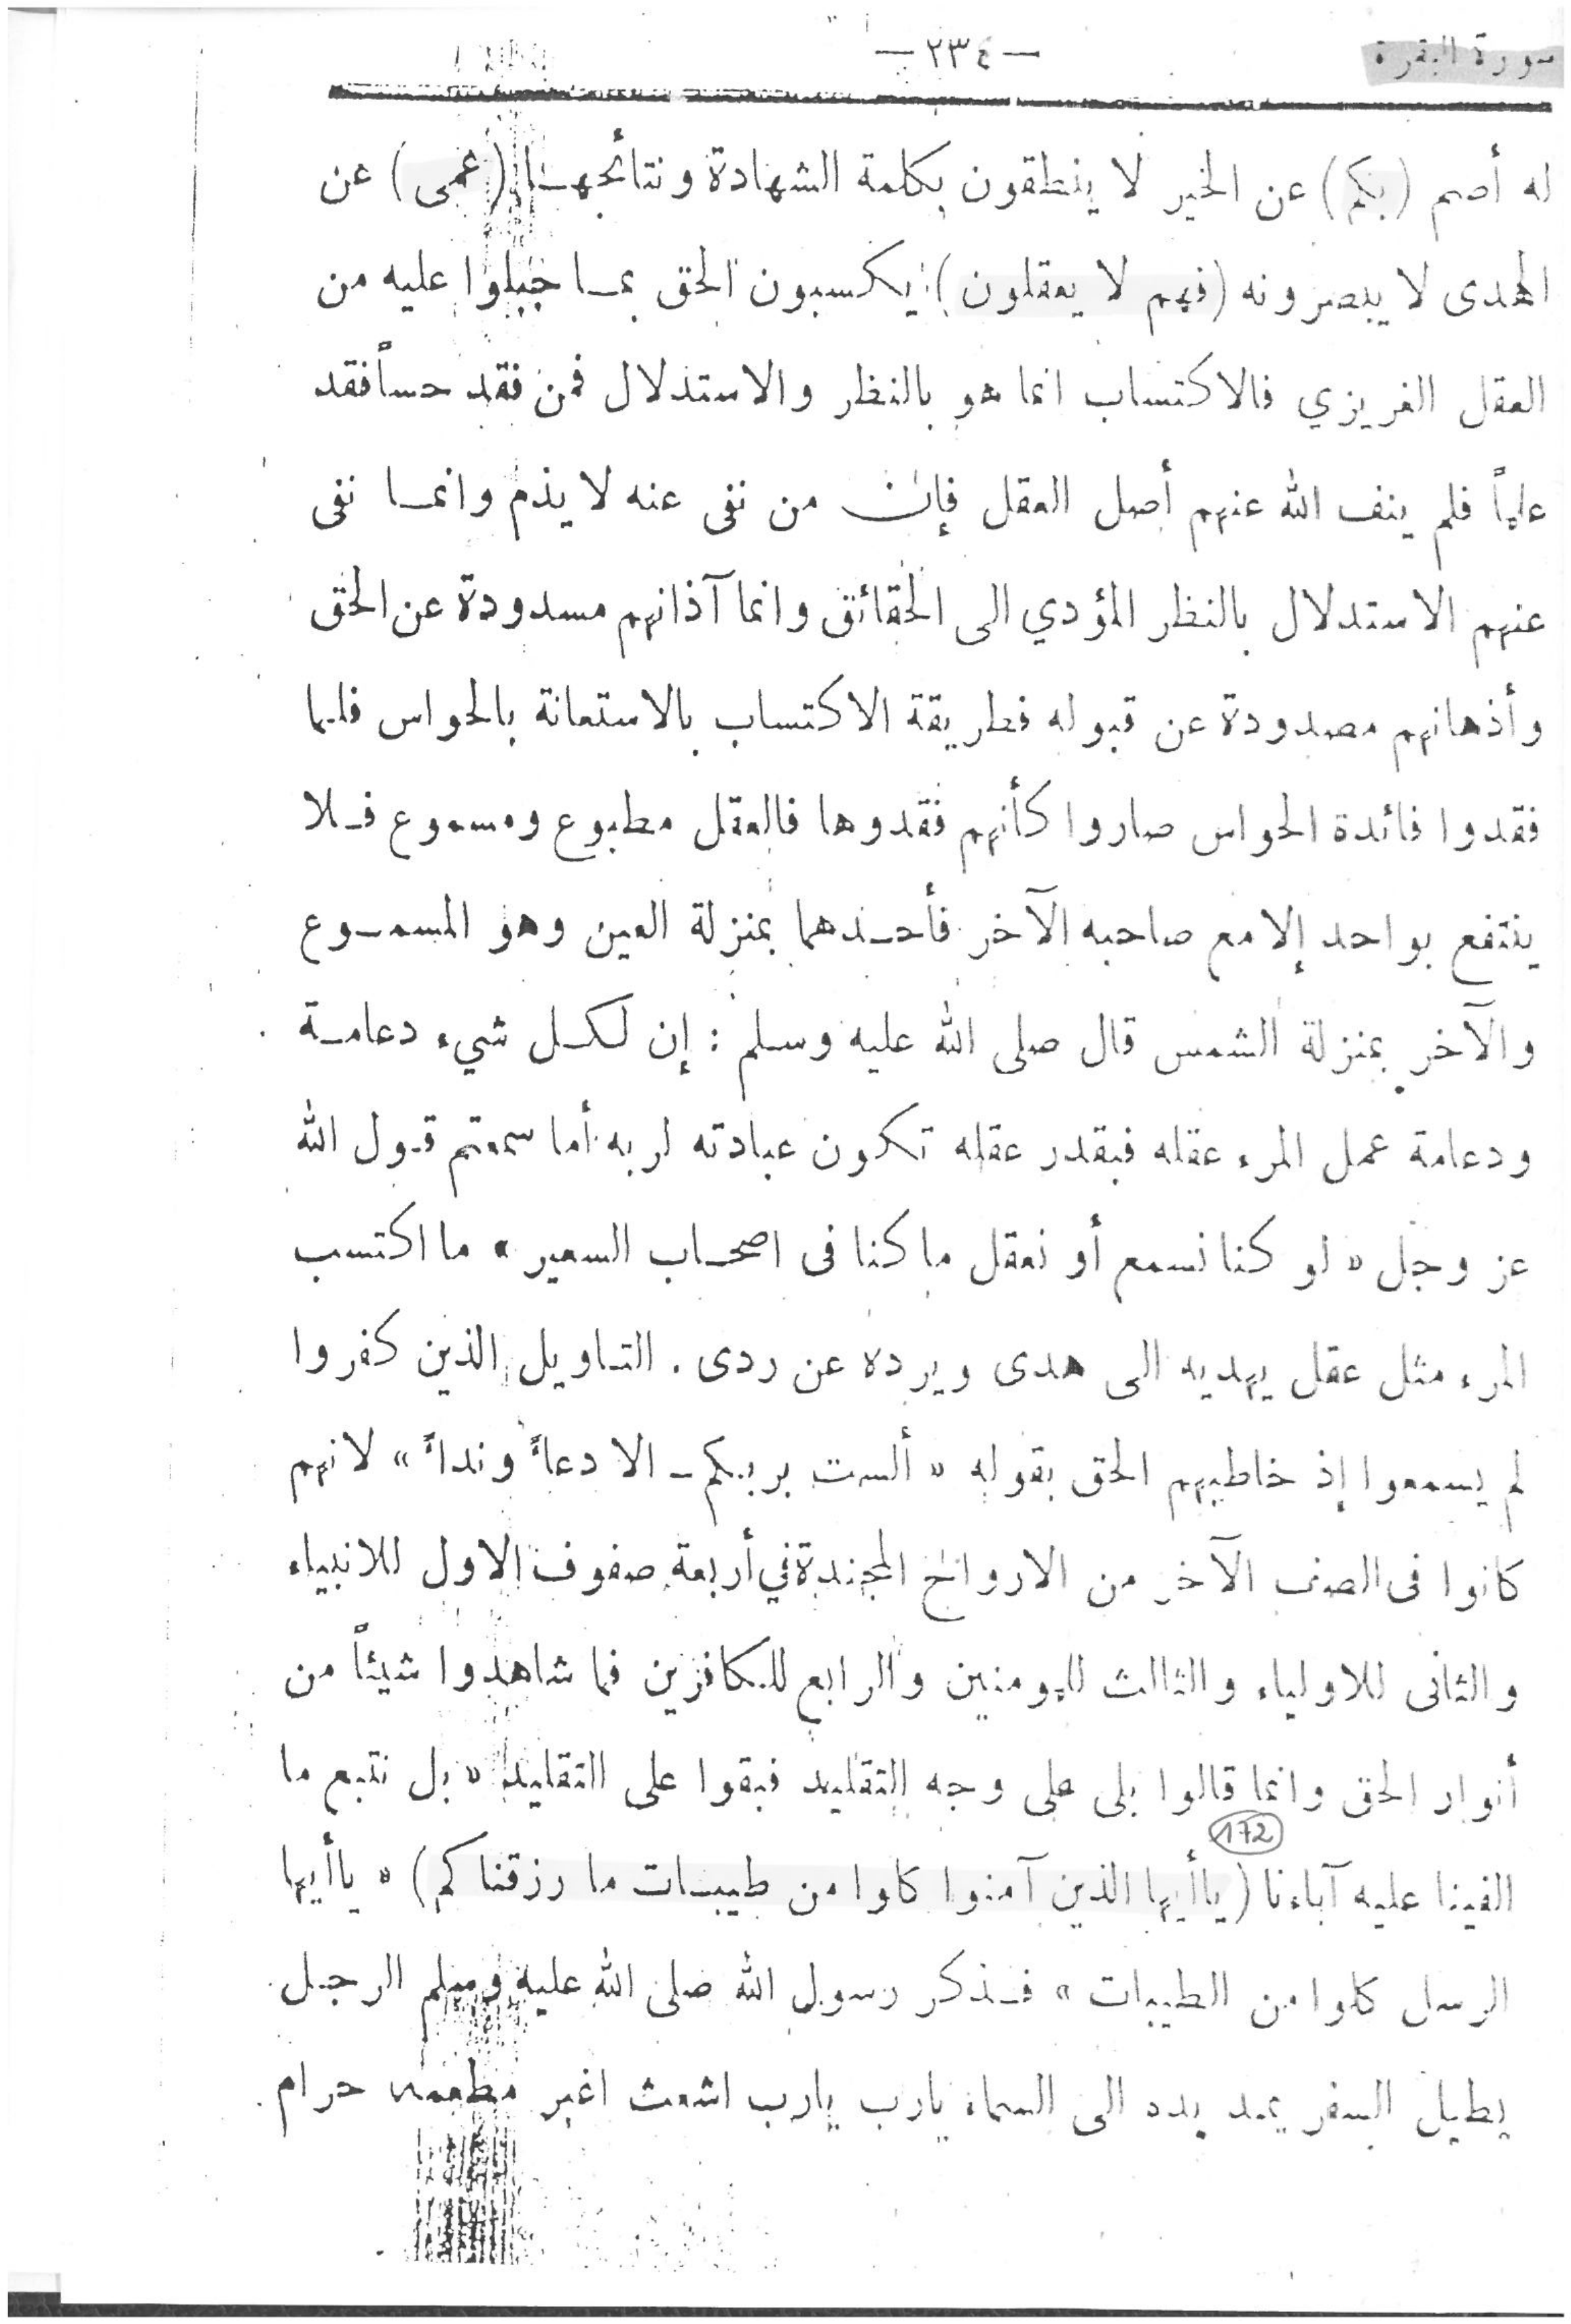 سورة البقرة
— ٢٣٤ —
له أصم (بكم) عن الخير لا ينطقون بكلمة الشهادة ونتائجها (عمى) عن
الهدى لا يبصرونه (فهم لا يعقلون) يكسبون الحق بما جبلوا عليه من
العقل الغريزي فالاكتساب انما هو بالنظر والاستدلال فمن فقد حساً فقد
علماً فلم ينف الله عنهم أصل العقل فإن من نفى عنه لا يذم وانما نفى
عنهم الاستدلال بالنظر المؤدي الى الحقائق وانما آذانهم مسدودة عن الحق
وأذهانهم مصدودة عن قبوله فطريقة الاكتساب بالاستعانة بالحواس فلما
فقدوا فائدة الحواس صاروا كأنهم فقدوها فالعقل مطبوع ومسموع فلا
ينتفع بواحد إلا مع صاحبه الآخر فأحدهما بمنزلة العين وهو المسموع
والآخر بمنزلة الشمس قال صلى الله عليه وسلم : إن لكل شيء دعامة
ودعامة عمل المرء عقله فبقدر عقله تكون عبادته لربه أما سمعتم قول الله
عز وجل « لو كنا نسمع أو نعقل ما كنا فى اصحاب السعير » ما اكتسب
المرء مثل عقل يهديه الى هدى ويرده عن ردى . التاويل الذين كفروا
لم يسمعوا إذ خاطبهم الحق بقوله « ألست بربكم ـ الا دعاءً ونداءً » لانهم
كانوا فى الصف الآخر من الارواح المجندة في أربعة صفوف الاول للانبياء
والثانى للاولياء والثالث للمومنين والرابع للكافرين فما شاهدوا شيئاً من
أنوار الحق وانما قالوا بلى على وجه التقليد فبقوا على التقليد « بل نتبع ما
172
الفينا عليه آباءنا (ياأيها الذين آمنوا كلوا من طيبات ما رزقناكم) « ياأيها
الرسل كلوا من الطيبات » فذكر رسول الله صلى الله عليه وسلم الرجل
يطيل السفر يمد يده الى السماء يارب يارب اشعث اغبر مطعمه حرام